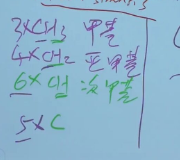 3×CH3 甲基
4×CH2 亚甲基
6×CH 次甲基
5×C